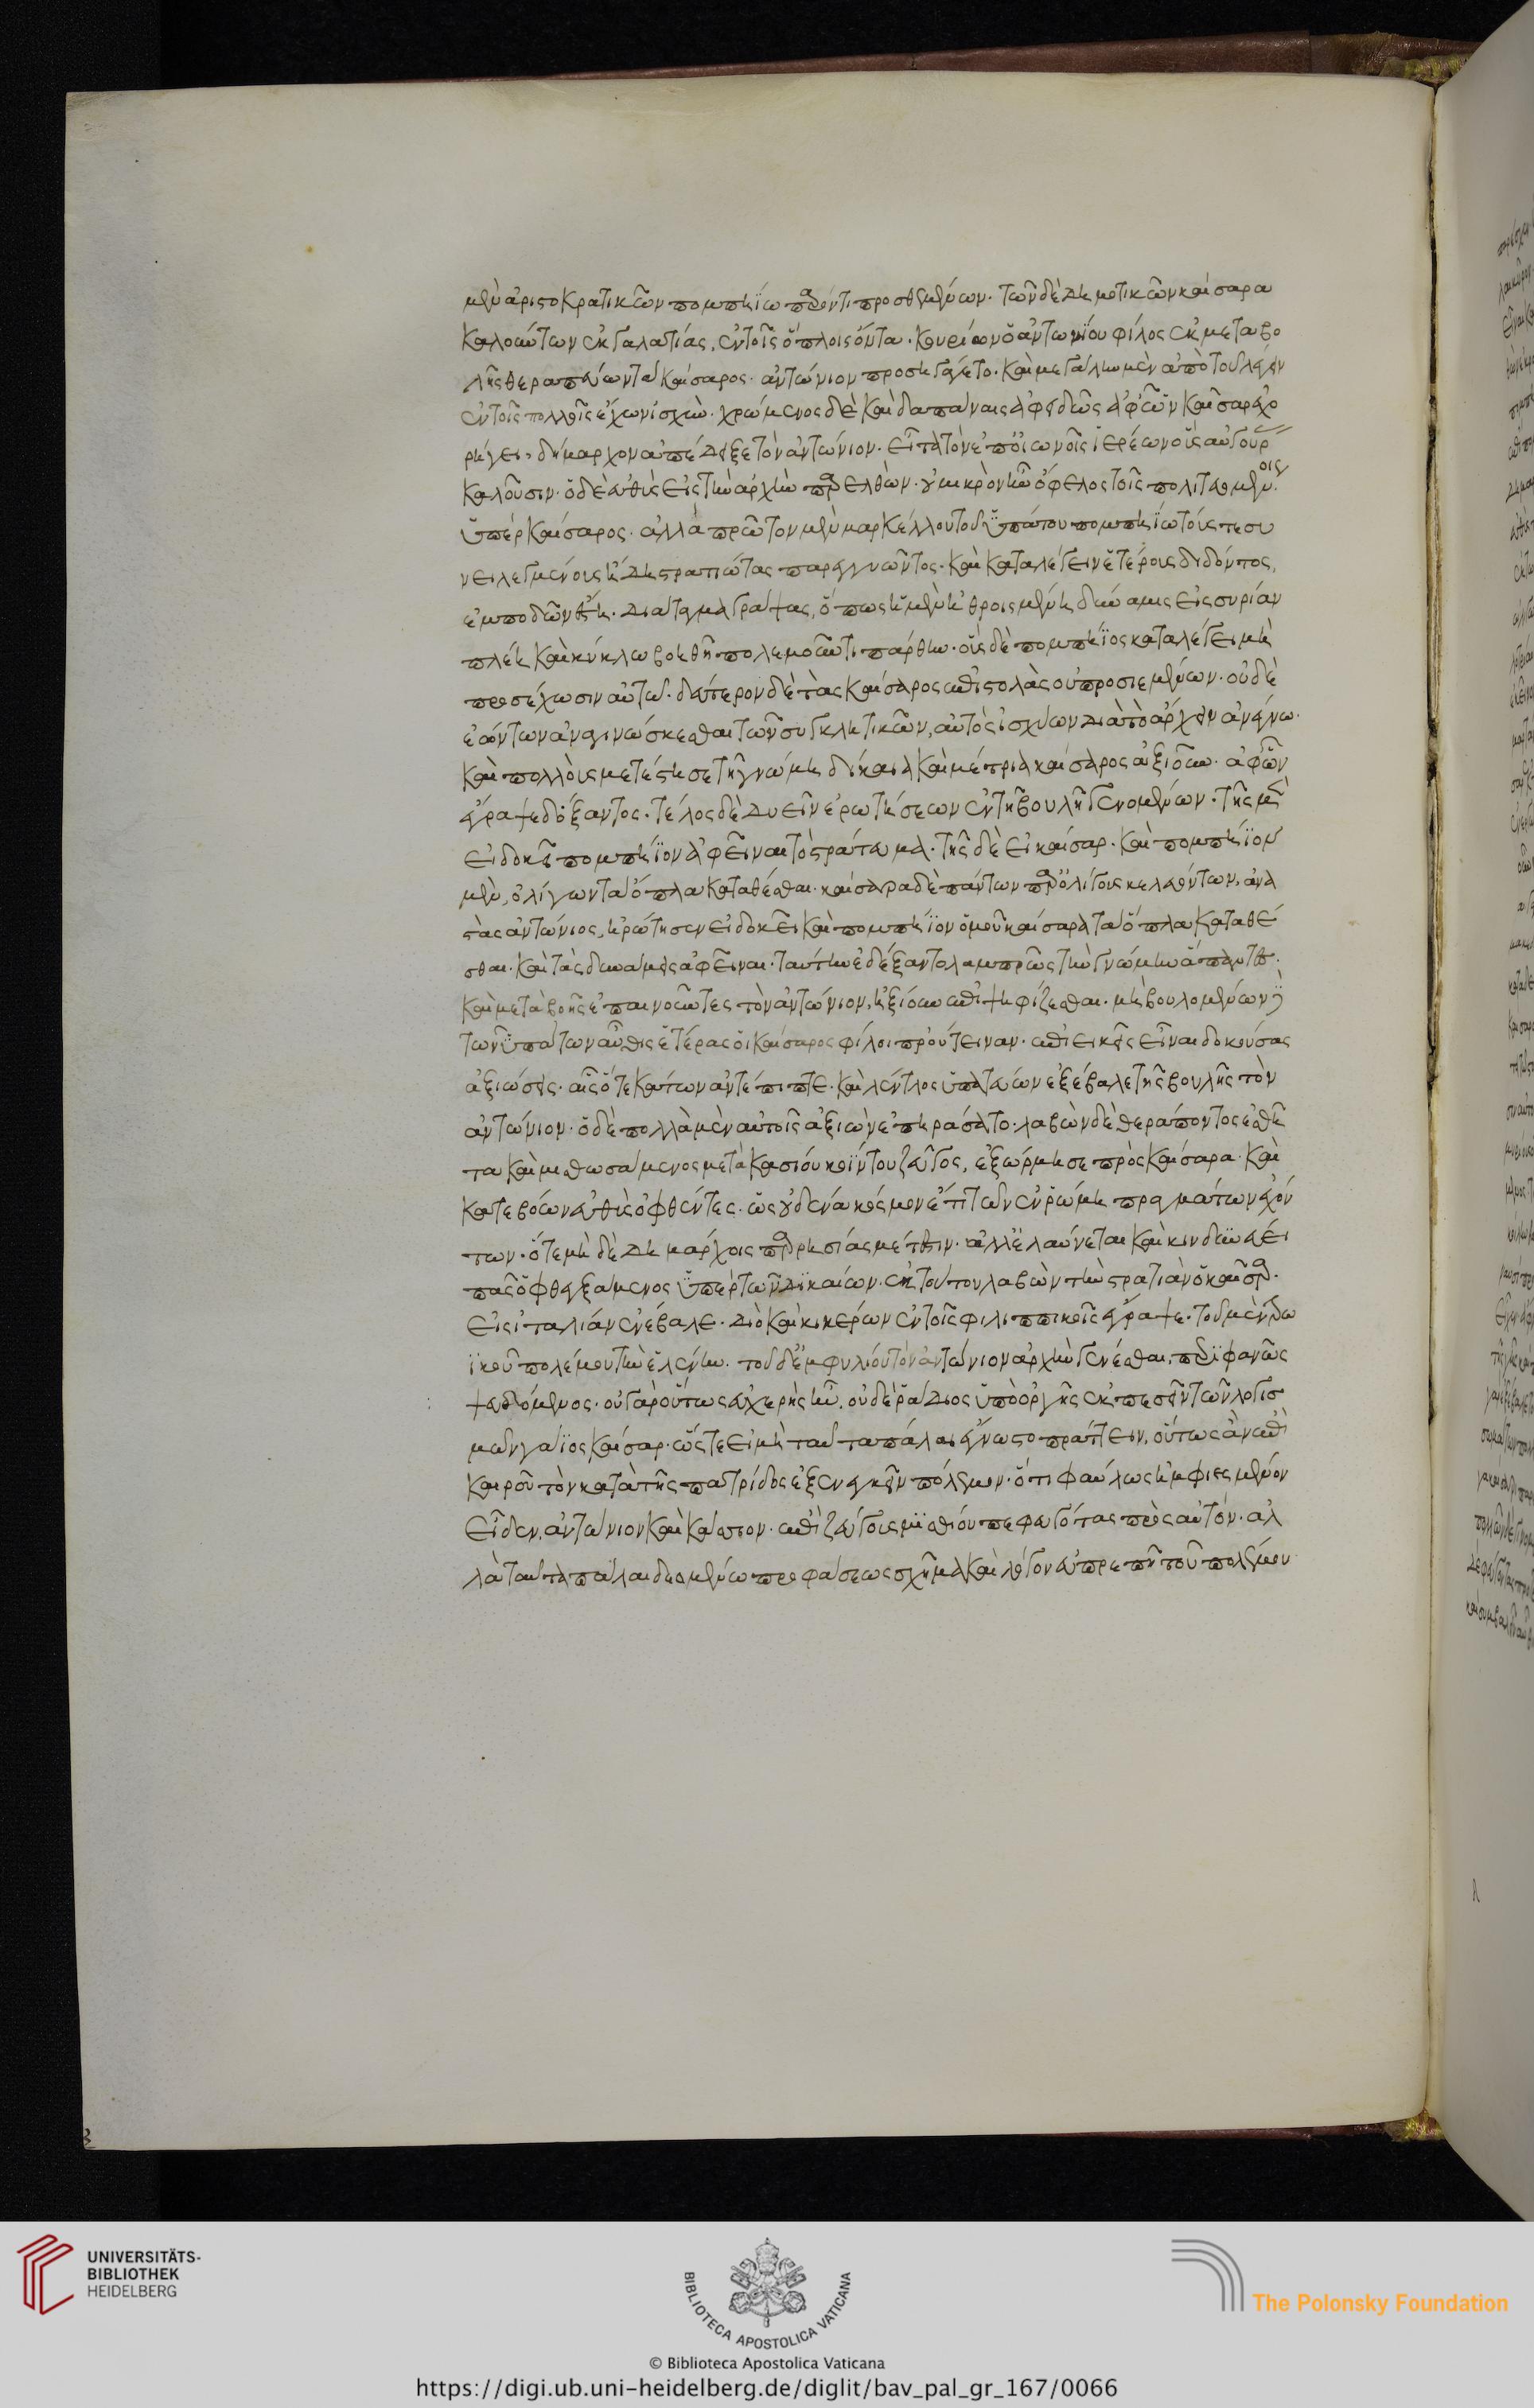 μὲν ἀριστοκρατικῶν πομπηίω παρόντι προσθεμένων· τῶν δὲ δημοτικῶν καίσαρα
καλούντων ἐκ γαλατίας, ἐν τοῖς ὅπλοις ὄντα· κουρίων ὁ ἀντωνίου φίλος ἐκ μεταβο
λῆς θεραπεύων τὰ καίσαρος· ἀντώνιον προσηγάγετο· καὶ μεγάλην μὲν ἀπὸ τοῦ λέγειν
ἐν τοῖς πολλοῖς ἔχων ἰσχὺν· χρώμενος δὲ καὶ δαπάναις ἀφειδῶς ἀφ' ὧν καῖσαρ ἐχο
ρήγει, δήμαρχον ἀπέδειξε τὸν ἀντώνιον· εἶτα τῶν ἐπ' οἰωνοῖς ἱερέων οὓς αὐγούρ
καλοῦσιν· ὁ δὲ εὐθὺς εἰς τὴν ἀρχὴν παρελθὼν· οὐ μικρὸν ἦν ὄφελος τοῖς πολιτευομένοις
ὑπὲρ καίσαρος· ἀλλὰ πρῶτον μὲν μαρκέλλου τοῦ ὑπάτου πομπηίω τούς τε συ
νειλεγμένους ἤδη στρατιώτας παρεγγυῶντος· καὶ καταλέγειν ἑτέρους διδόντος,
ἐμποδὼν ἔστη· διάταγμα γράψας, ὅπως ἡ μὲν ἠθροισμένη δύναμις εἰς συρίαν
πλέη καὶ κύκλω βοηθῆ πολεμοῦντι πάρθων· οὓς δὲ πομπήϊος καταλέγει μὴ
προσέχωσιν αὐτῶ· δεύτερον δὲ τὰς καίσαρος ἐπιστολὰς οὐ προσιεμένων· οὐδὲ
ἐώντων ἀναγινώσκεσθαι τῶν συγκλητικῶν, αὐτὸς ἰσχύων διὰ τὸ ἄρχειν ἀνέγνω·
καὶ πολλοὺς μετέστησε τῇ γνώμη δίκαια καὶ μέτρια καίσαρος ἀξιοῦν· ἀφ' ὧν
ἔγραψε δόξαντος· τέλος δὲ δυεῖν ἐρωτήσεων ἐν τῇ βουλῇ γενομένων· τῆς μὲν
εἰ δοκεῖ πομπήϊον ἀφεῖναι τὰ στρατεύματα· τῆς δὲ εἰ καίσαρ· καὶ πομπήϊον
μὲν, ὀλίγων τὰ ὅπλα καταθέσθαι· καίσαρα δὲ πάντων παρ' ὀλίγους κελευόντων, ἀνα
στὰς ἀντώνιος, ἠρώτησεν εἰ δοκεῖ καὶ πομπήϊον ὁμοῦ καὶ καίσαρα τὰ ὅπλα καταθέ
σθαι· καὶ τὰς δυνάμεις ἀφεῖναι· ταύτην ἐδέξαντο λαμπρῶς τὴν γνώμην ἅπαντες·
καὶ μετὰ βοῆς ἐπαινοῦντες τὸν ἀντώνιον, ἠξίουν ἐπιψηφίζεσθαι· μὴ βουλομένων δὲ
τῶν ὑπάτων αὖθις ἑτέρας οἱ καίσαρος φίλοι προὔτειναν· ἐπιεικεῖς εἶναι δοκούσας
ἀξιώσεις· αἷς ὅ τε κάτων ἀντέπιπτε· καὶ λέντλος ὑπατεύων ἐξέβαλε τῆς βουλῆς τὸν
ἀντώνιον· ὁ δὲ πολλὰ μὲν αὐτοῖς ἀξιὼν ἐπηράσατο· λαβὼν δὲ θεράποντος ἐσθῆ
τα καὶ μισθωσάμενος μετὰ κασίου κοΐντου ζεῦγος, ἐξώρμησε πρὸς καίσαρα· καὶ
κατεβόων εὐθὺς ὀφθέντες· ὡς οὐδένα κόσμον ἔτι τῶν ἐν ῥώμη πραγμάτων ἐχόν
των· ὅτε μὴ δὲ δημάρχοις παρρησίας μέτεστιν· ἀλλ' ἐλαύνεται καὶ κινδυνεύει
πᾶς ὁ φθεγξάμενος ὑπὲρ τῶν δικαίων· ἐκ τούτου λαβὼν τὴν στρατιὰν ὁ καῖσαρ·
εἰς ἰταλίαν ἐνέβαλε· διὸ καὶ κικέρων ἐν τοῖς φιλιππικοῖς ἔγραψε· τοῦ μὲν τρω
ϊκοῦ πολέμου τὴν ἑλένην· τοῦ δ' ἐμφυλίου τὸν ἀντώνιον ἀρχὴν γενέσθαι, περιφανῶς
ψευδόμενος· οὐ γὰρ οὕτως εὐχερὴς ἦν, οὐδὲ ῥάδιος ὑπὸ ὀργῆς ἐκπεσεῖν τῶν λογισ
μῶν γάϊος καίσαρ· ὥστε εἰ μὴ ταῦτα πάλαι ἔγνωστο πράττειν, οὕτως ἂν ἐπὶ
καιροῦ τὸν κατὰ τῆς πατρίδος ἐξενεγκεῖν πόλεμον· ὅτι φαύλως ἠμφιεσμένον
εἶδεν, ἀντώνιον καὶ κάσσιον· ἐπὶ ζεύγους μισθίου πεφευγότας πρὸς αὐτόν· ἀλ
λὰ ταῦτα πάλαι δεομένω προφάσεως σχῆμα καὶ λόγον εὐπρεπῆ τοῦ πολέμου
UNIVERSITÄTS-
BIBLIOTHEK
HEIDELBERG
BIBLIOTECA APOSTOLICA VATICANA
The Polonsky Foundation
© Biblioteca Apostolica Vaticana
https://digi.ub.uni-heidelberg.de/diglit/bav_pal_gr_167/0066